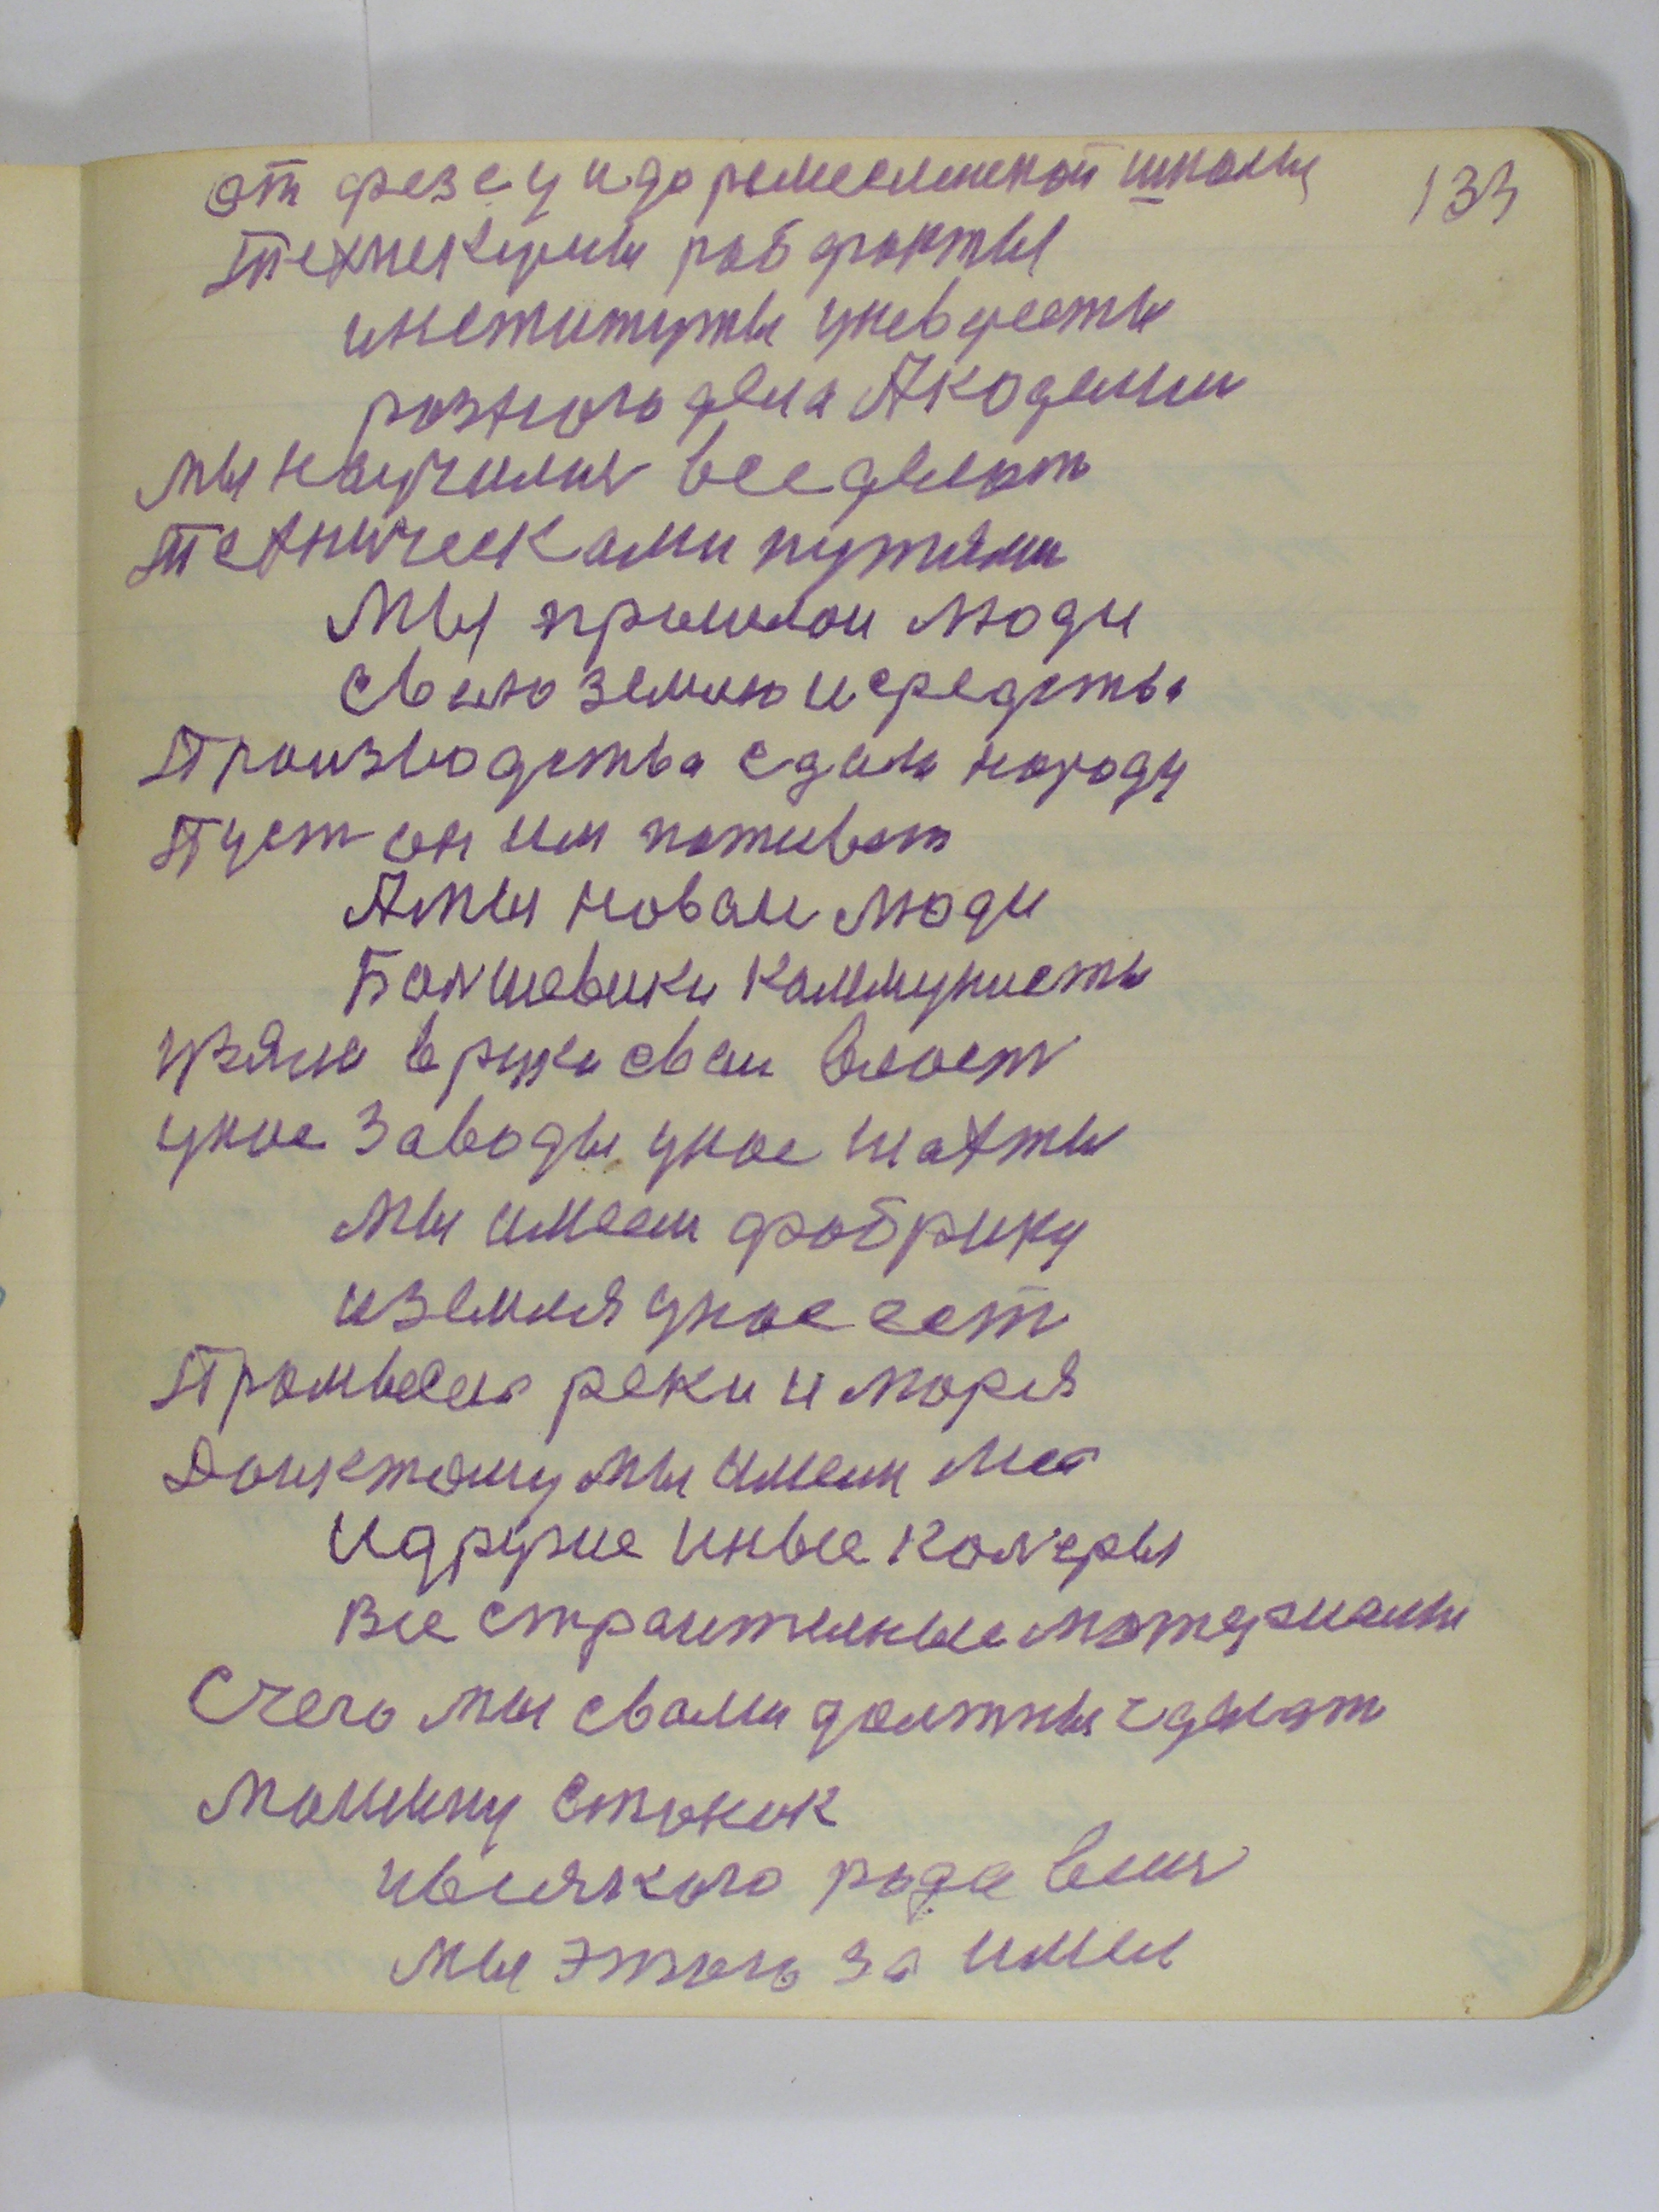 от фезеу и до ремесленной школы 133
Технекумы рабфакты
институты уневуеты
разного дела Акодемии
мы научилия все делат
Техническами путями
Мы прошлои люди
Свою землю и средства
Производства сдали народу
Пуст он им поживет
А мы новаи люди
Болшевики Коммунисты
узяли в руки сваи власт
унас Заводы унас шахты
Мы имеем фабрику
и земля унас ест
Промысла реки и моря
Даиктому мы имеем леса
И другие иные Колеры
Все страительные материалы
С чего мы свами должны сделат
Машину Станок
ивсякого рода вещ
мы этого за имел